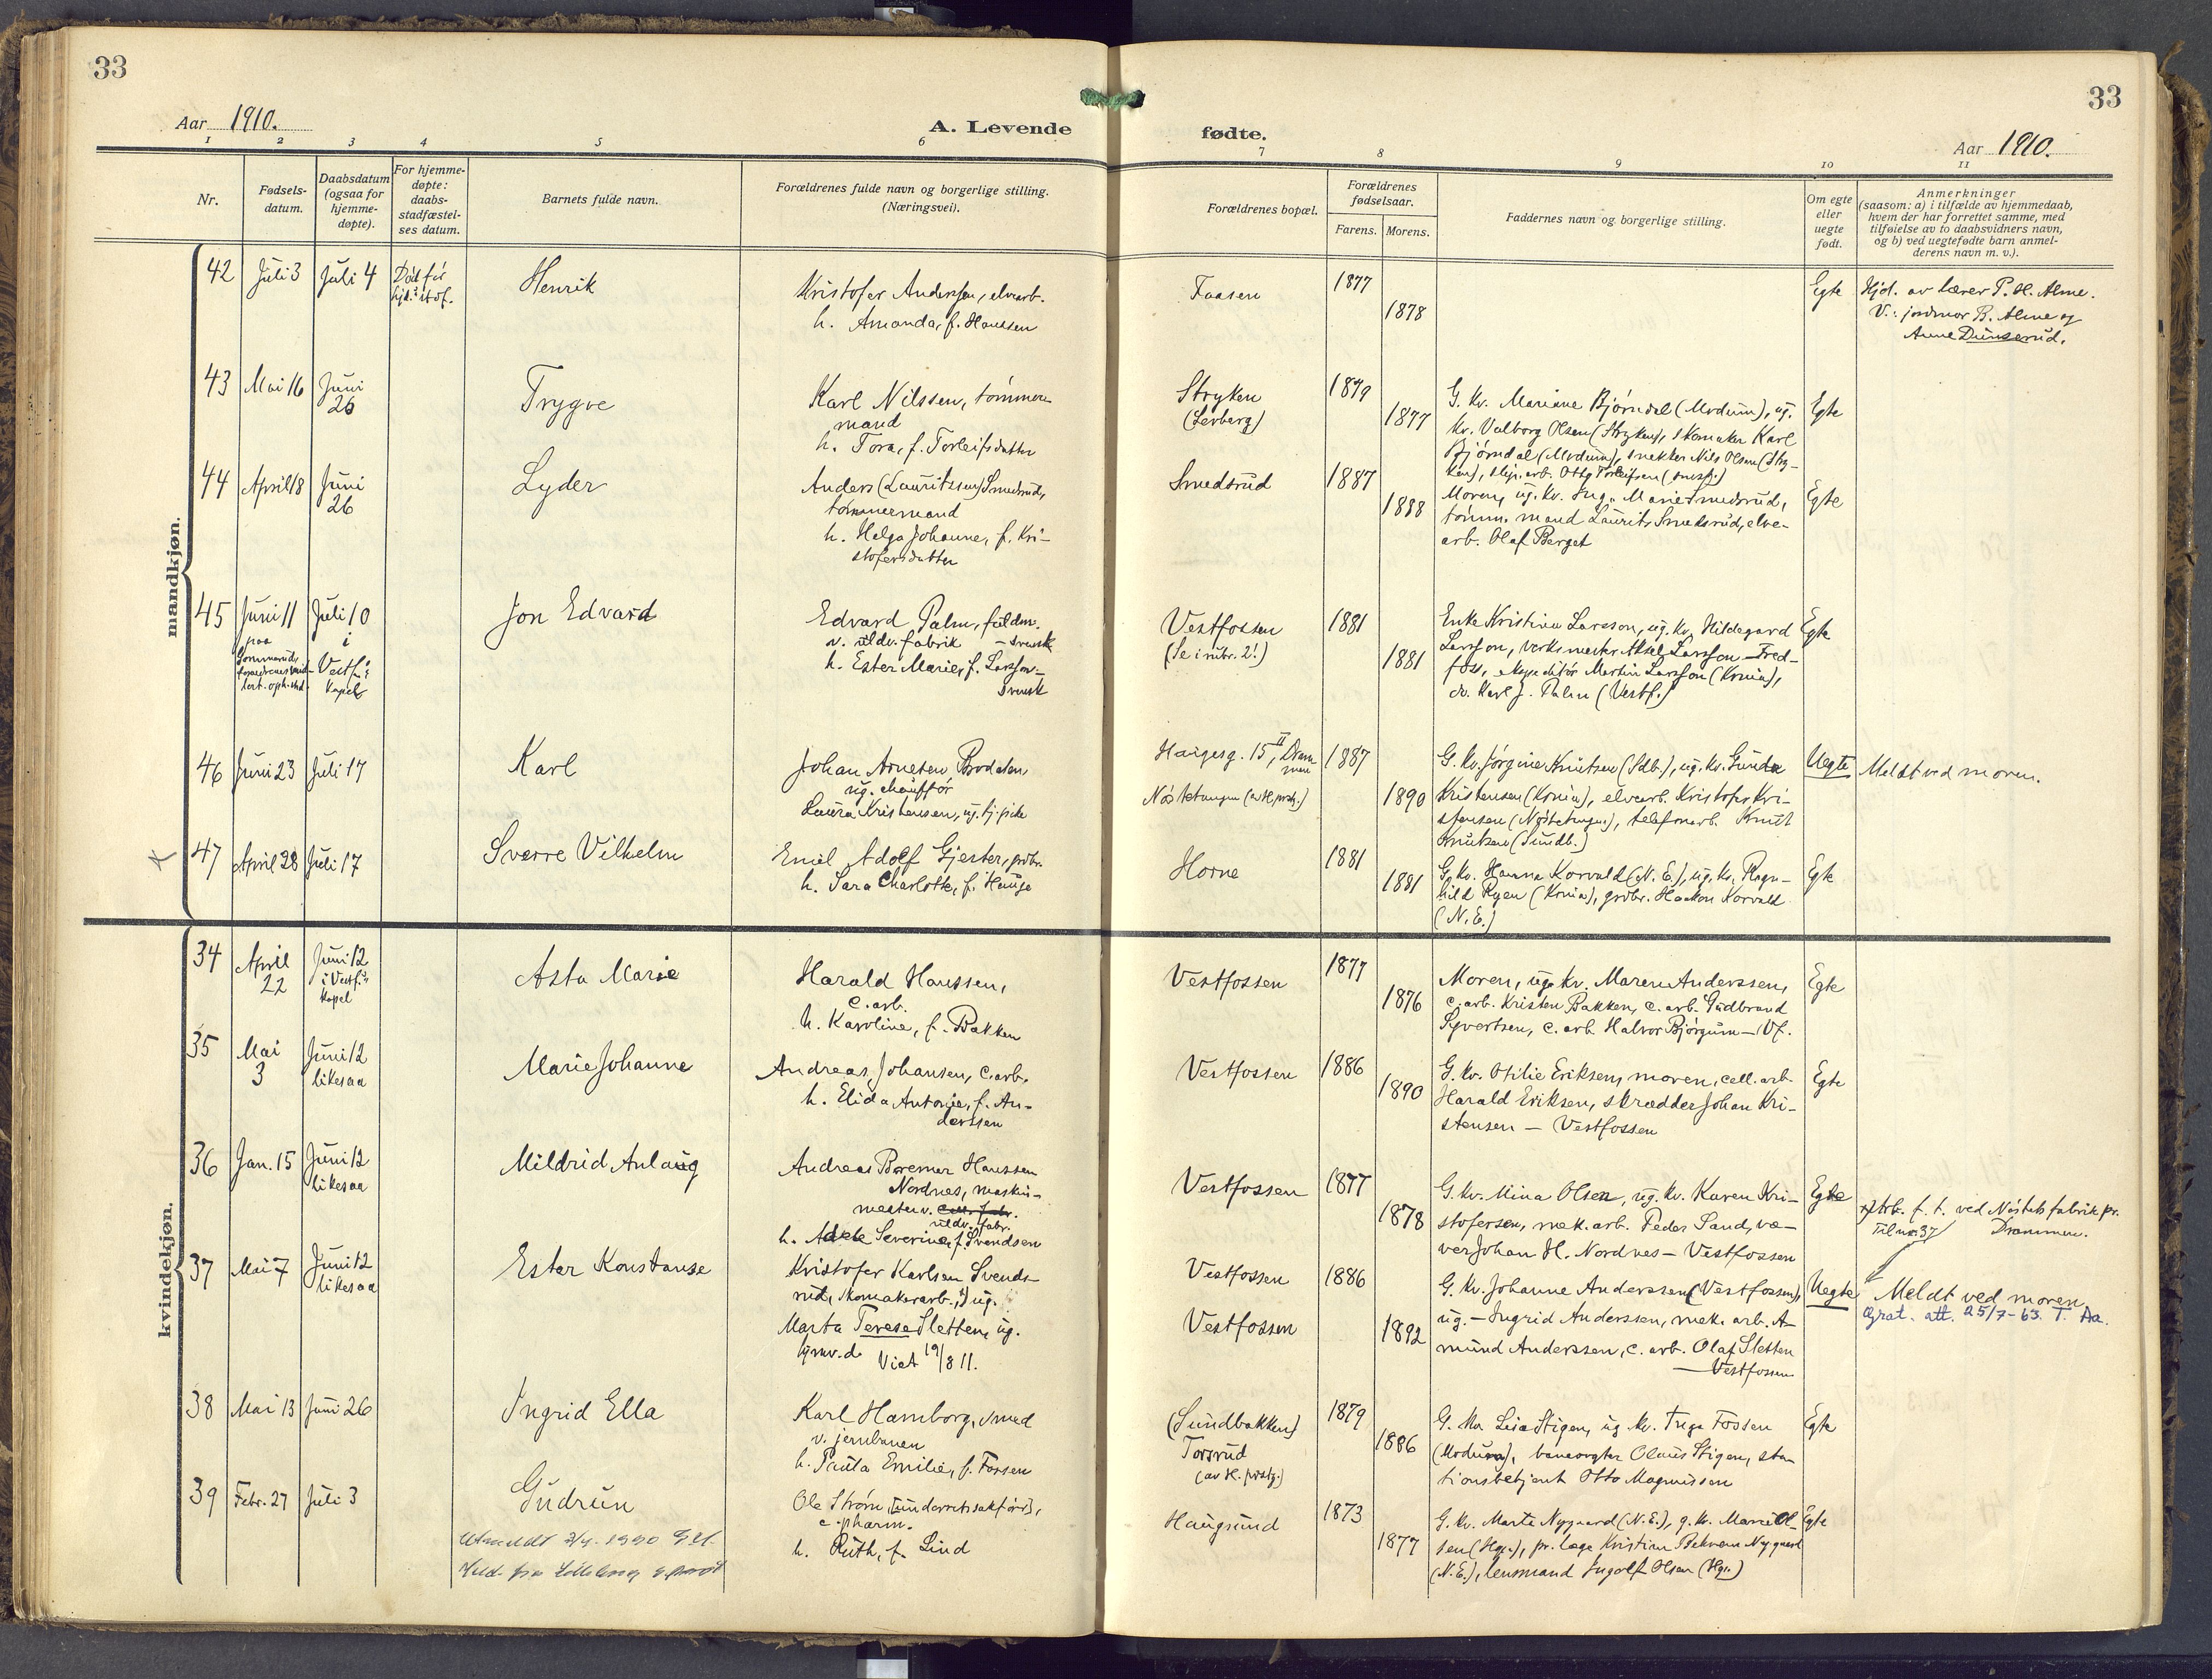 33
33
Aar 1910.
A. Levende
fødte.
Aar 1910.
1 2 3 4 5 6 7 8 9 10 11
Nr.
Fødsels-
datum.
Daabsdatum
(ogsaa for
hjemme-
døpte).
For hjemme-
døpte:
daabs-
stadfæstel-
ses datum.
Barnets fulde navn.
Forældrenes fulde navn og borgerlige stilling.
(Næringsvei).
Forældrenes bopæl.
Forældrenes
fødselsaar.
Farens. Morens.
Faddernes navn og borgerlige stilling.
Om egte
eller
uegte
født.
Anmerkninger
(saasom: a) i tilfælde av hjemmedaab,
hvem der har forrettet samme, med
tilføielse av to daabsvidners navn,
og b) ved uegtefødte barn anmel-
derens navn m. v.).
mandkjøn.
42 Juli 3 Juli 4
Død før
Henrik
Kristofer Anderssen, elvearb.
h. Amanda, f. Hanssen
Faasen
1877
1878
Egte
Hjd. av lærer P. H. Alme.
V.: jordmor B. Alme og
Anne Dunserud.
43 Mai 16 Juni
26
Trygve
Karl Nilssen, tømmer-
mand
h. Tora, f. Torleifsdatter
Stryken
(Lerberg)
1879
1877
G. kv. Mariane Bjørndal (Modum), ug.
kv. Valborg Olsen (Stryken), skomaker Karl
Bjørndal (Modum), snekker Nils Olsen (Stry-
ken), slip.arb. Otto Torleifsen
Egte
44 April 8 Juni
26
Lyder
Anders (Lauritssen) Smedsrud,
tømmermand
h. Helga Johanne, f. Kri-
stofersdatter
Smedsrud
1887
1888
Moren, ug. kv. Inga Marie Smedsrud,
tømm. mand Laurits Smedsrud, elve-
arb. Olaf Berget
Egte
45 Juni 11
paa
Juli 10
i
Vestf.s
kapel
Jon Edvard
Edvard Palm, fuldm.
v. uldv.fabrik – svensk
h. Ester Marie, f. Larsson –
svensk
Vestfossen
(Se i rubr. 2!)
1881
1881
Enke Kristina Larsson, ug. kv. Hildegard
Larsson, verksmester Aksel Larsson – Fred-
fos, ekspeditør Martin Larsson (Krnia),
do. Karl J. Palm (Vestf.)
Egte
46 Juni 23 Juli 17
Karl
Johan Arnesen Brodalen,
ug. chauffør
Laura Kristensen, ug. tj.pike
Haugesg. 15 II, Dram-
men
1887
1890
G. kv. Jørgine Knutsen (Sdb.), ug. kv. Gunda
Kristensen (Krnia), elvearb. Kristofer Kri-
stensen, telefonarb. Knut
Knutsen (Sundb.)
Uegte
Meldt ved moren.
x 47 April 28 Juli 17
Sverre Vilhelm
Emil Adolf Gjester, grdbr.
h. Sara Charlotte, f. Hauge
Horne
1881
1881
G. kv. Hanna Korvald (N. E.), ug. kv. Ragn-
hild Ryen (Krnia), grdbr. Haakon Korvald
(N. E.)
Egte
kvindekjøn.
34 April
22
Juni 12
i Vestf.s
kapel
Asta Marie
Harald Hanssen,
c. arb.
h. Karoline, f. Bakken
Vestfossen
1877
1876
Moren, ug. kv. Maren Anderssen,
c. arb. Kristen Bakken, c. arb. Gudbrand
Syvertsen, c. arb. Halvor Bjørgum – Vf.
Egte
35 Mai
3
Juni 12
likesaa
Marie Johanne
Andreas Johansen, c. arb.
h. Elida Antonie, f. An-
derssen
Vestfossen
1886
1890
G. kv. Otilie Eriksen, moren, cell. arb.
Harald Eriksen, skrædder Johan Kri-
stensen – Vestfossen
Egte
36 Jan. 15 Juni 12
likesaa
Mildrid Anlaug
Andreas Bremer Hanssen
Nordnes, maskin-
mester v. cell. fabr.
uldv. fabr.
h. Adele Severine, f. Svendsen
Vestfossen
1877
1878
G. kv. Mina Olsen, ug. kv. Karen Kri-
stofersen, mek. arb. Peder Sand, væ-
ver Johan H. Nordnes – Vestfossen
Egte
x) Arb. f. t. ved Nøsteds fabrik pr.
Til nr. 37 Drammen.
37 Mai 7 Juni 12
likesaa
Ester Konstanse
Kristofer Karlsen Svends-
rud, skomakerarb., x) ug.
Marta Terese Sletten, ug.
Viet 19/8 11.
Vestfossen
Vestfossen
1886
1892
G. kv. Johanne Anderssen (Vestfossen),
ug. – Ingrid Anderssen, mek. arb. A-
mund Anderssen, c. arb. Olaf Sletten
– Vestfossen
Uegte
Meldt ved moren
Grat. att. 25/7-63. T. Aa.
38 Mai 13 Juni 26
Ingrid Ella
Karl Hamborg, smed
v. jernbanen
h. Paula Emilie, f. Fossen
(Sundbakken)
Torsrud
1879
1886
G. kv. Lisa Stigen, ug. kv. Inga Fossen
(Modum), banevogter Olaus Stigen, sta-
tionsbetjent Otto Magnussen
Egte
39 Febr. 27 Juli 3
Gudrun
Ole Strøm, [underretssakfører],
c. pharm.
h. Ruth, f. Lind
Haugsund
1873
1877
G. kv. Marte Nygaard (N. E.), g. kv. Marie Ol-
sen (Hgs.), pr. læge Kristian Bekvam Nygaard
(N. E.), lensmand Ingolf Olsen (Hgs.)
Egte
Utmeldt 1920